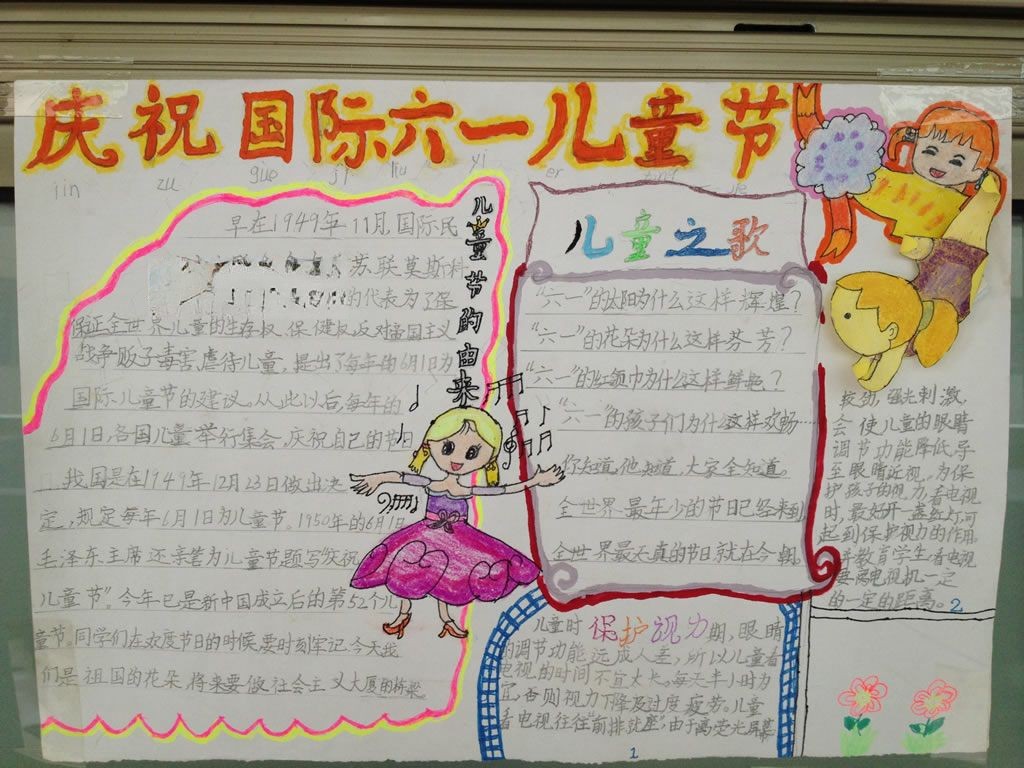 庆祝国际六一儿童节
jin zu guo ji liu yi er jie
儿童节的由来
早在1949年11月,国际民
苏联莫斯科
的代表为了保
保证全世界儿童的生存权、保健权,反对帝国主义
战争贩子毒害虐待儿童,提出了每年的6月1日为
国际儿童节的建议。从此以后,每年的
6月1日,各国儿童举行集会,庆祝自己的节日
我国是在1949年12月23日做出决
定,规定每年6月1日为儿童节。1950年的6月1日
毛泽东主席还亲笔为儿童节题写“庆祝
儿童节”。今年已是新中国成立后的第52个儿
童节。同学们在欢度节日的时候,要时刻牢记,今天我
们是祖国的花朵,将来要做社会主义大厦的桥梁
儿童之歌
“六一”的太阳为什么这样辉煌?
“六一”的花朵为什么这样芬芳?
“六一”的红领巾为什么这样鲜艳?
“六一”的孩子们为什么这样欢畅
你知道,他知道,大家全知道。
全世界最年少的节日已经来到
全世界最天真的节日就在今朝
儿童时保护视力期,眼睛
的调节功能远成人差,所以儿童看
电视的时间不宜太长,每天半小时为
宜,否则视力下降及过度疲劳。儿童
看电视往往“前排就座”,由于离荧光屏幕
1
较劲,强光刺激,
会使儿童的眼睛
调节功能降低,导
至眼睛近视。为保
护孩子的视力,看电视
时,最好开一盏红灯,可
起到保护视力的作用,
并教育学生,看电视
要离电视机一定
的一定的距离。2